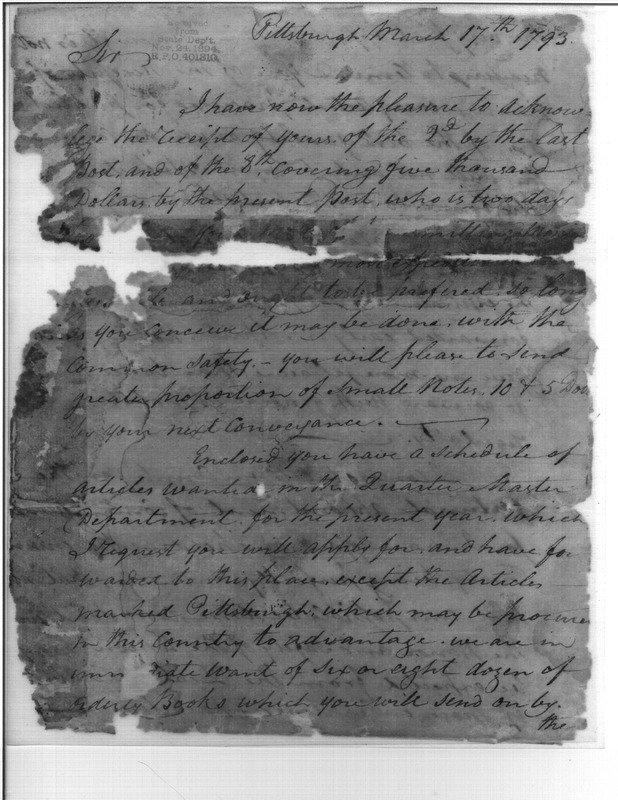 Pittsburgh March 17.th 1793.
Received
from
State Dep't.
Nov. 24, 1894,
R.P.O. 401810.
Sir
I have now the pleasure to acknow
lege the receipt of yours. of the 2d. by the last
Post, and of the 8th. Covering five thousand
Dollars by the present post, who is two days
be and ought to be prefered, so long
as you conceive it may be done, with the
Common safety. – you will please to send
greater proportion of Small Notes, 10 & 5 Do
by your next conveyance.
Enclosed you have a schedule of
articles wanted in the Quarter Master
Department for the present year. which
I request you will apply for, and have for
warded to this place, except the Articles
marked Pittsburgh. which may be procure
in this Country to advantage. we are in
imm iate want of six or eight dozen of
rderly Books which you will send on by.
the